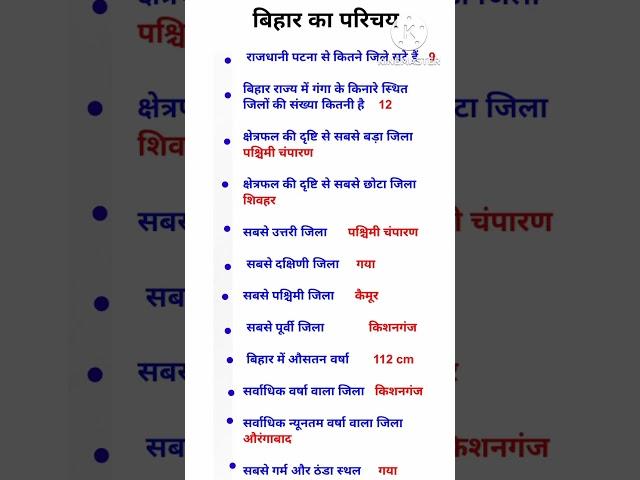 बिहार का परिचय
KINEMASTER
राजधानी पटना से कितने जिले सटे हैं 9
बिहार राज्य में गंगा के किनारे स्थित
जिलों की संख्या कितनी है 12
क्षेत्रफल की दृष्टि से सबसे बड़ा जिला
पश्चिमी चंपारण
क्षेत्रफल की दृष्टि से सबसे छोटा जिला
शिवहर
सबसे उत्तरी जिला पश्चिमी चंपारण
सबसे दक्षिणी जिला गया
सबसे पश्चिमी जिला कैमूर
सबसे पूर्वी जिला किशनगंज
बिहार में औसतन वर्षा 112 cm
सर्वाधिक वर्षा वाला जिला किशनगंज
सर्वाधिक न्यूनतम वर्षा वाला जिला
औरंगाबाद
सबसे गर्म और ठंडा स्थल गया